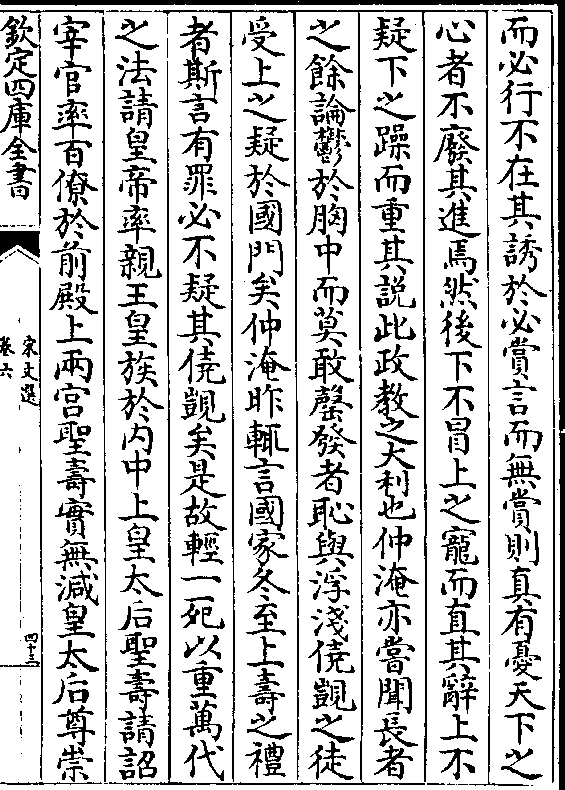 而必行不在其誘於必賞言而無賞則真有憂天下之
心者不廢其進焉然後下不冒上之寵而直其辭上不
疑下之躁而重其説此政教之大利也仲淹亦嘗聞長者
之餘論鬱於胸中而莫敢罄發者恥與浮淺僥覬之徒
受上之疑於國門矣仲淹昨輒言國家冬至上壽之禮
者斯言有罪必不疑其僥覬矣是故輕一死以重萬代
之法請皇帝率親王皇族於内中上皇太后聖壽請詔
宰官率百僚於前殿上兩宫聖壽實無減皇太后尊崇
欽定四庫全書
宋文選
卷六
四十三